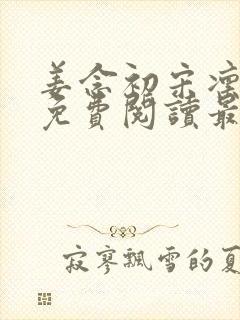 姜念初宋凜
免費閱讀最
寂寥飄雪的夏